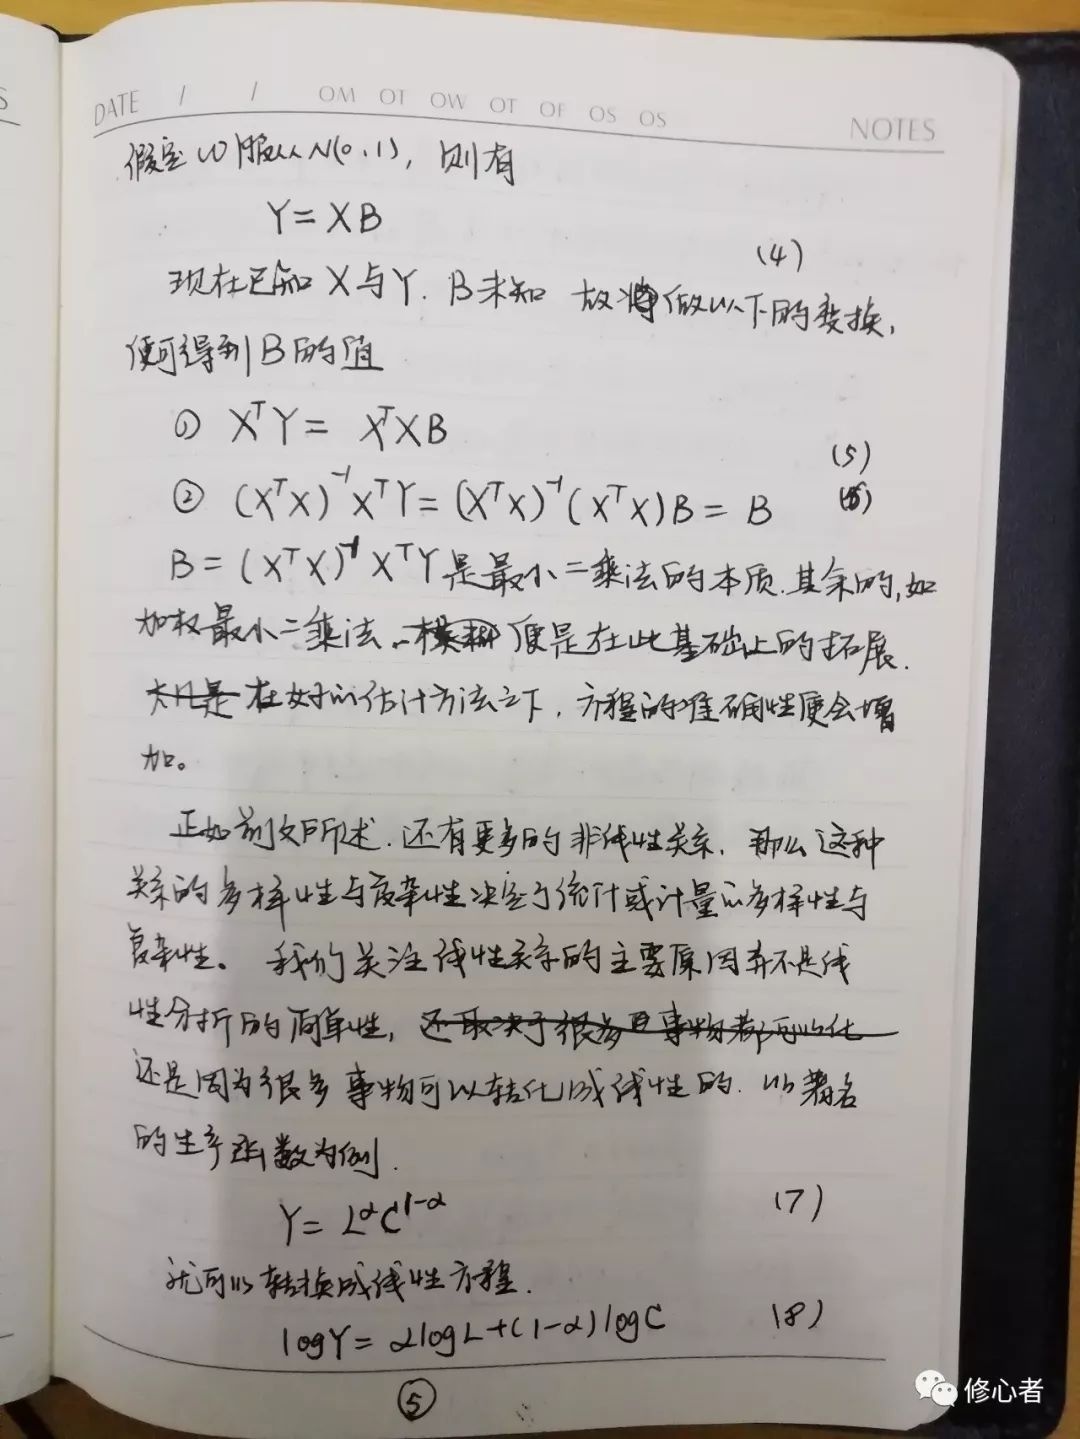 DATE / / OM OT OW OT OF OS OS NOTES
假定 W 服从 N(0,1), 则有
Y = XB (4)
现在已知 X 与 Y. B未知 故 做以下的变换,
便可得到 B 的值
① XᵀY = XᵀXB (5)
② (XᵀX)⁻¹XᵀY = (XᵀX)⁻¹(XᵀX)B = B (6)
B = (XᵀX)⁻¹XᵀY 是最小二乘法的本质. 其余的, 如
加权最小二乘法 便是在此基础上的拓展.
在好的估计方法之下, 方程的准确性便会增
加。
正如前文所述. 还有更多的非线性关系. 那么这种
关系的多样性与复杂性决定了统计或计量的多样性与
复杂性。 我们关注线性关系的主要原因并不是线
性分析的简单性, 还取决于很多 事物都可以化
还是因为很多事物可以转化成线性的. 以著名
的生产函数为例.
Y = LᵅC¹⁻ᵅ (7)
就可以转换成线性方程.
logY = αlogL+(1-α)logC (8)
⑤
修心者